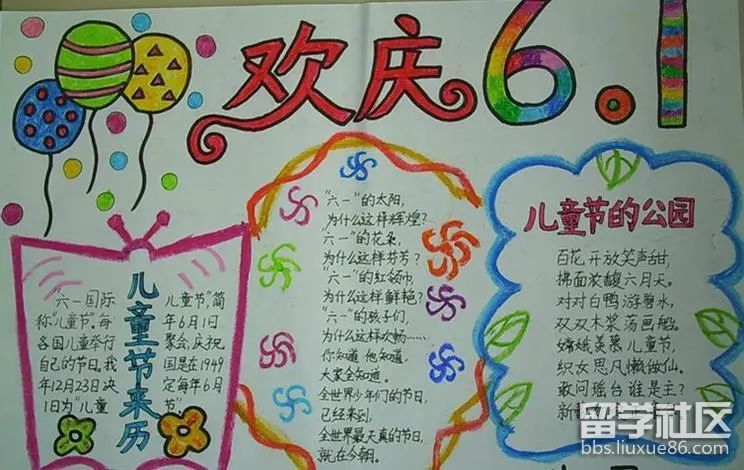 欢庆6.1
儿童节来历
"六一国际
称"儿童节"。每
各国儿童举行
自己的节日。我
年12月23日决
1日为"儿童
儿童节",简
年6月1日
聚会,庆祝
国是在1949
定每年6月
节"
"六一"的太阳,
为什么这样辉煌?
"六一"的花朵,
为什么这样芬芳?
"六一"的红领巾
为什么这样鲜艳?
"六一"的孩子们,
为什么这样欢畅……
你知道 他知道,
大家全知道。
全世界少年们的节日,
已经来到,
全世界最天真的节日,
就在今朝。
儿童节的公园
百花开放笑声甜,
拂面浓馥六月天。
对对白鸭游碧水,
双双木桨荡画船。
嫦娥羡慕儿童节,
织女思凡懒做仙。
敢问瑶台谁是主?
新
留学社区
bbs.liuxue86.com